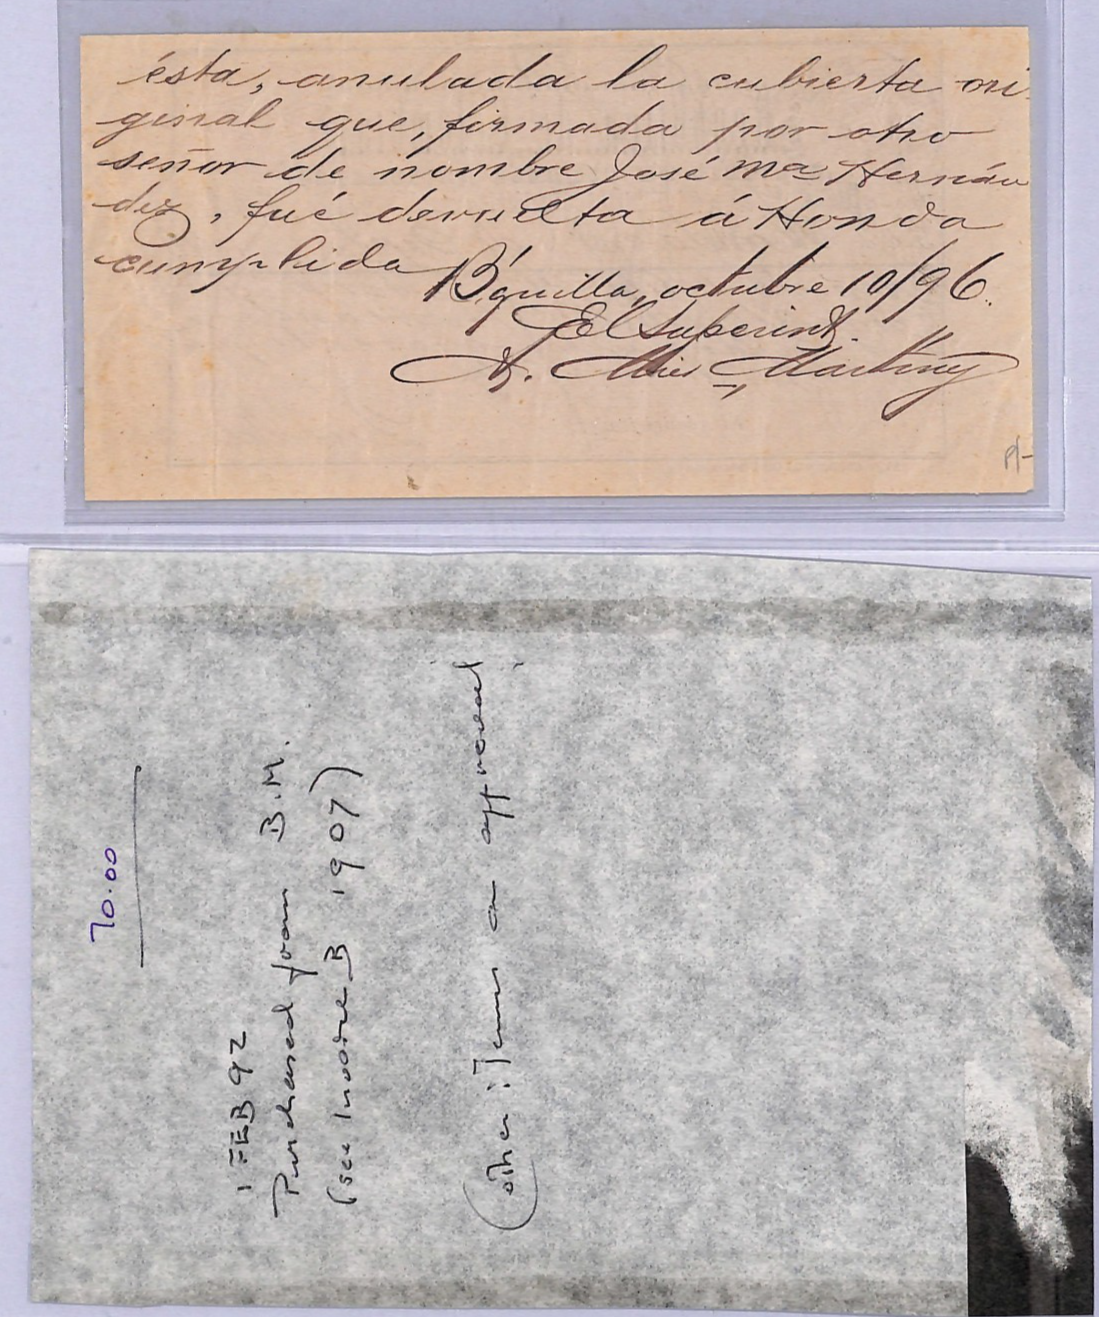 ésta, anulada la cubierta ori-
ginal que, firmada por otro
señor de nombre José Ma Hernán
dez, fué devuelta á Honda
cumplida
B'quilla, octubre 10/96.
El Superint.
A. Martínez
P/-
70.00
1 FEB 92
Purchased from B.M.
(see Invoice B 1907)
(other items on approval